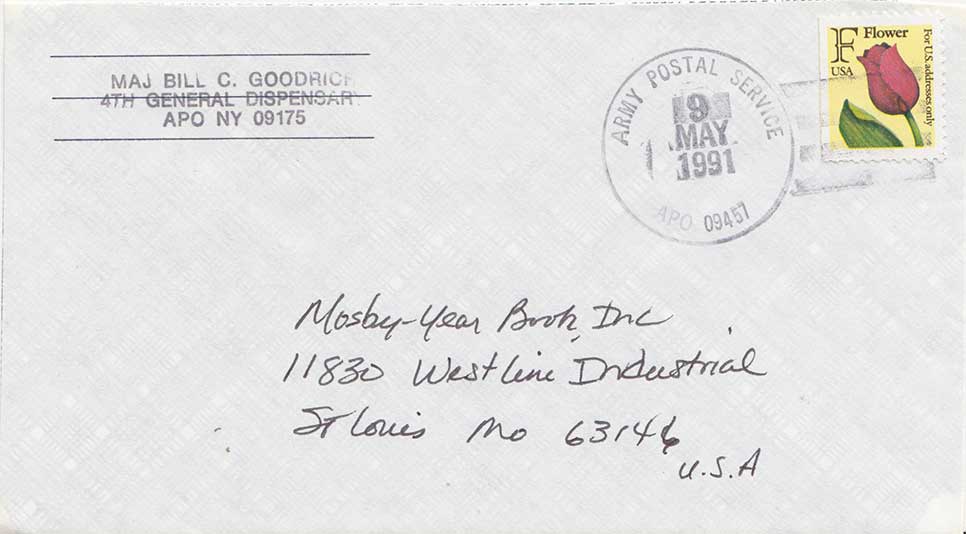 MAJ BILL C. GOODRICH
4TH GENERAL DISPENSARY
APO NY 09175
ARMY POSTAL SERVICE
9
MAY
1991
APO 09457
F Flower
USA
For U.S. addresses only
Mosby-Year Book, Inc
11830 Westline Industrial
St Louis Mo 63146
U.S.A